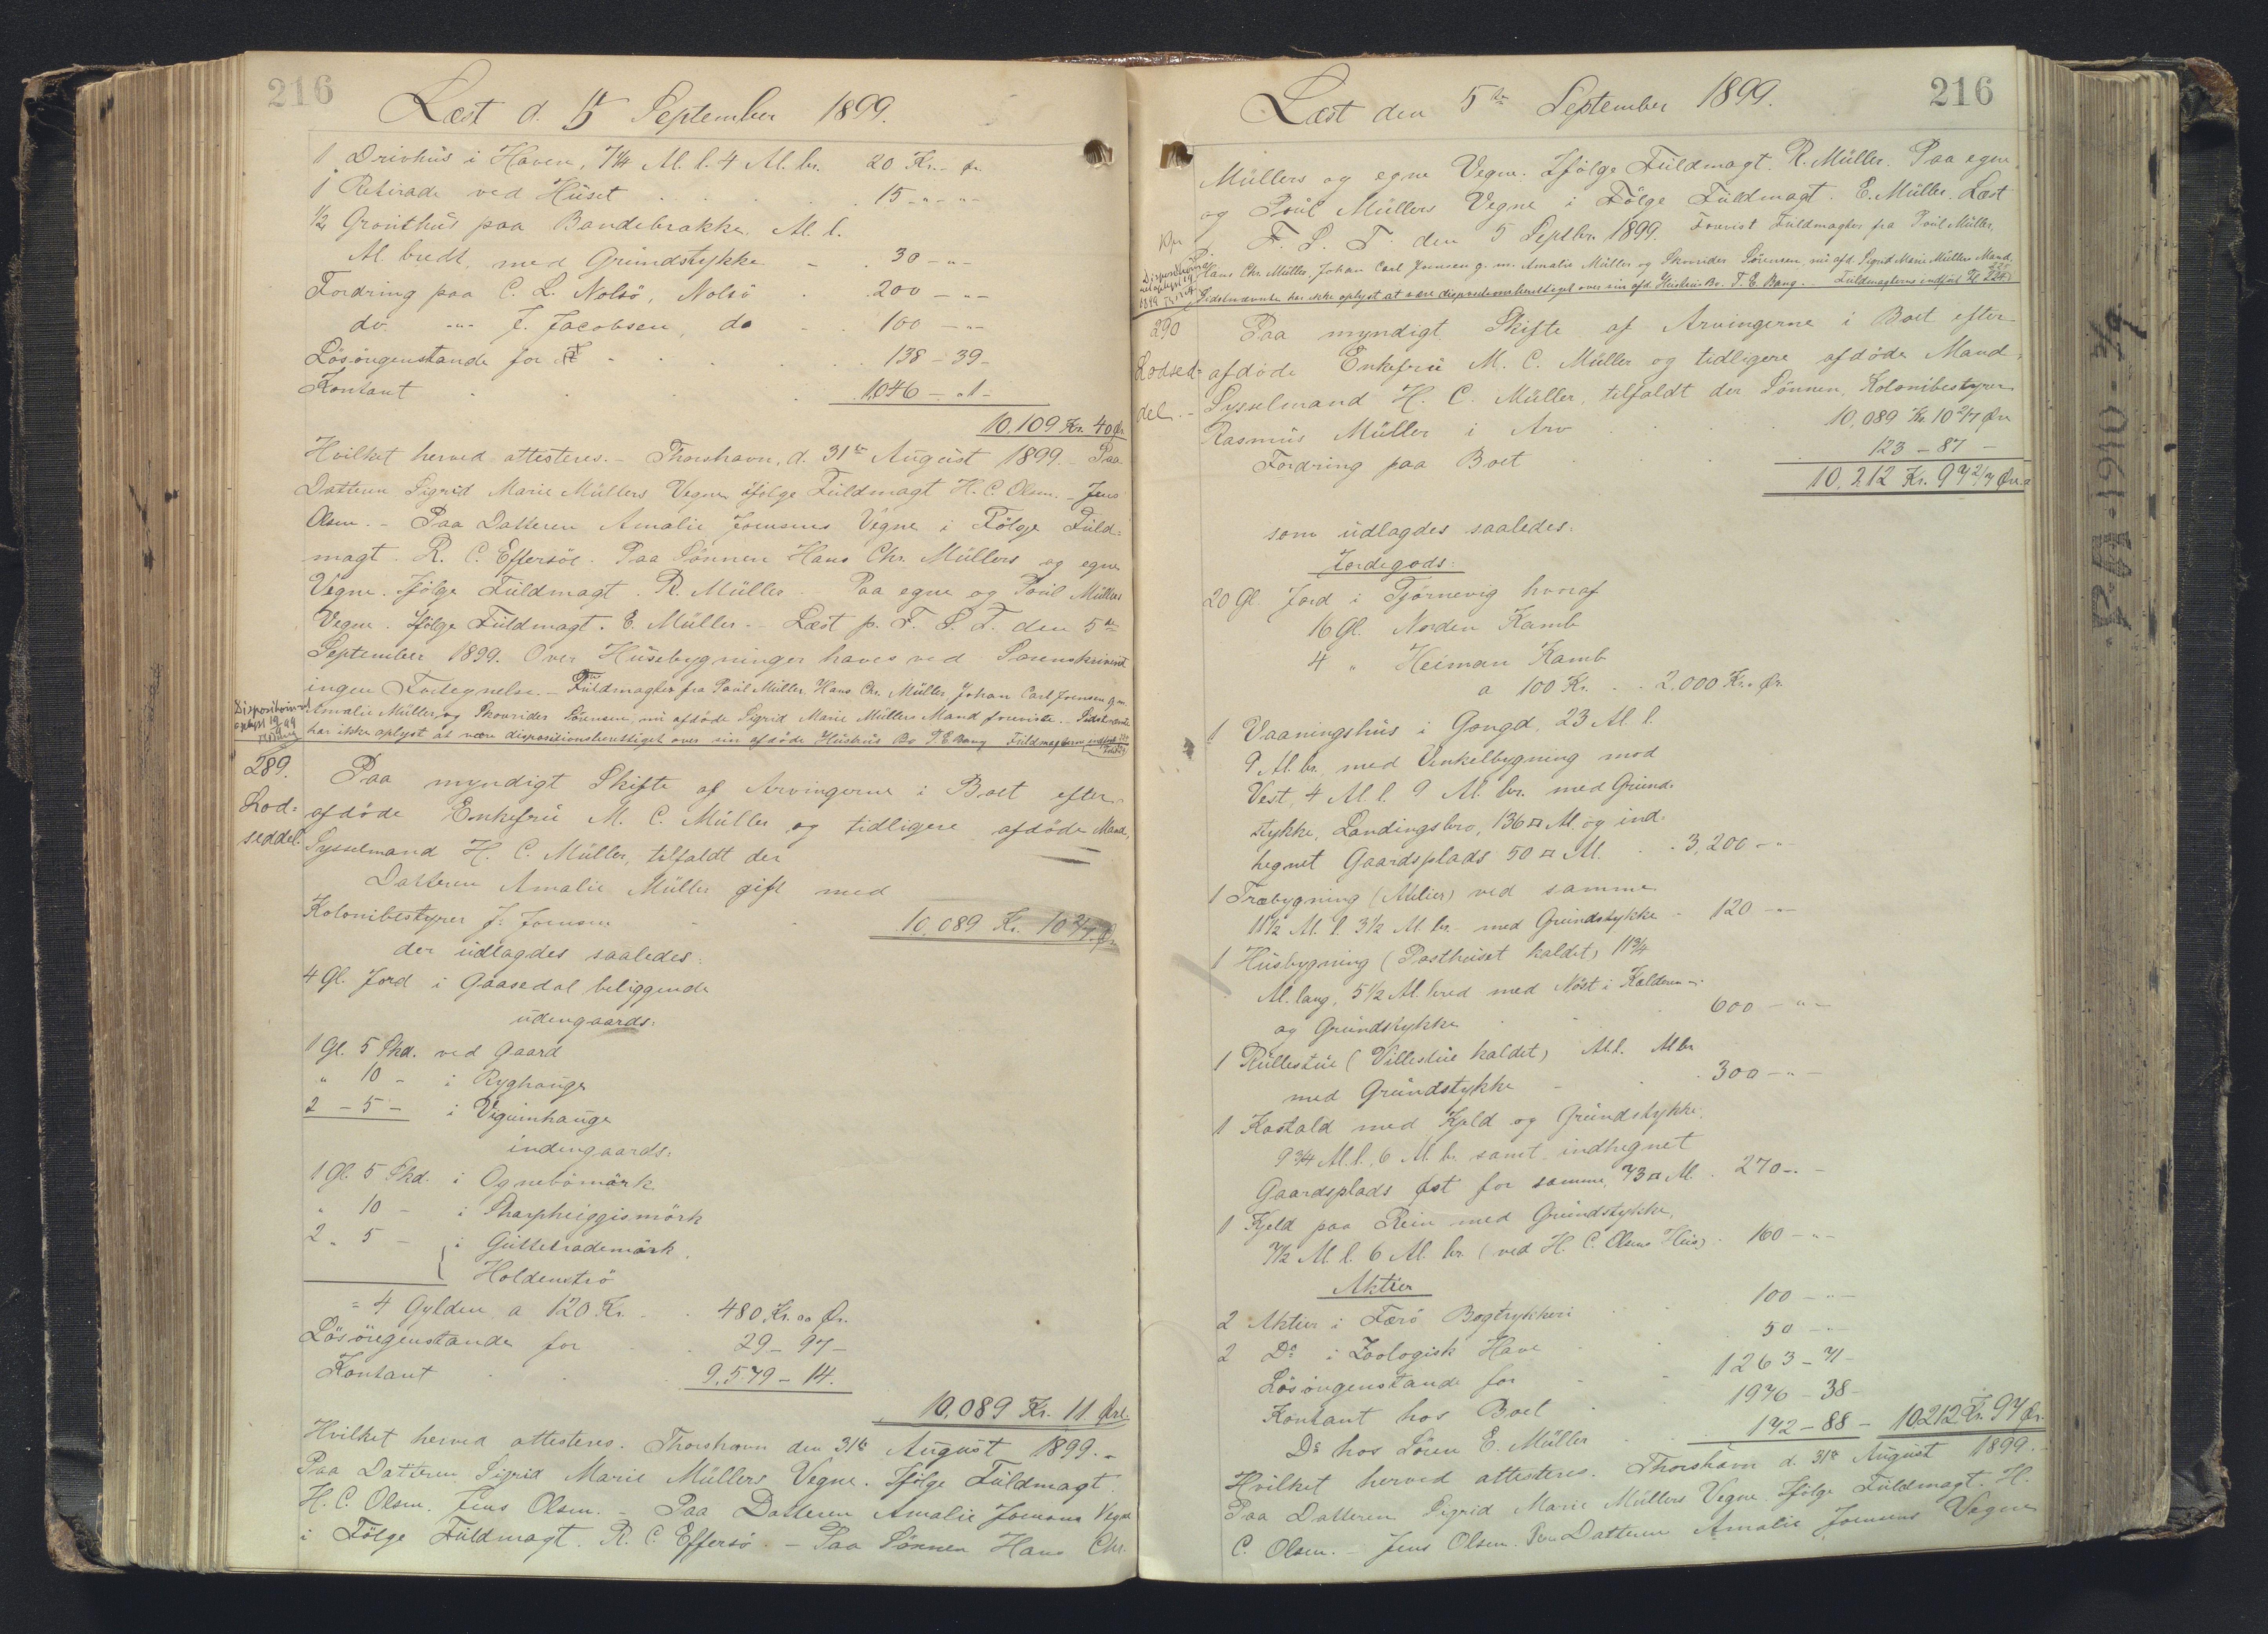 216
Læst d. 5 September 1899.
1 Drivhüs i Haven, 7 1/4 Al. l. 4 Al. br. 20 Kr. - Ør.
1 Retirade ved Hüset . . . 15 - " - "
1/2 Gronthüs paa Bandebrakke. Al. l.
Al. bredt, med Gründstykke - . 30 - " -
Fordring paa C. L. Nolsö, Nolsö . 200 - " -
do. - " - J. Jacobsen, do . . 100 - " -
Lösöregenstande for . . . 138 - 39 -
Kontant . . . 1046 - " 1 -
10,109 Kr. 40 Ør.
Hvilket herved attesteres. - Thorshavn, d. 31te Augüst 1899. - Paa
Datteren Sigrid Marie Müllers Vegne ifölge Füldmagt H. C. Olsen. - Jens
Olsen. - Paa Datteren Amalie Joensens Vegne i Fölge Füld-
magt. R. C. Effersöe. Paa Sönnen Hans Chr. Müllers og egne
Vegne. Ifölge Füldmagt. R. Müller. - Paa egne og Poül Müllers
Vegne. Ifölge Füldmagt. E. Müller. - Læst p. F. S. T. den 5te
September 1899. Over Hüsebygninger haves ved Sorenskriveriet
ingen Fortegnelse. - Füldmagter fra Poül Müller, Hans Chr. Müller, Johan Carl Joensen g. m.
Amalie Müller, og Skovrider Sörensen, nü afdöde Sigrid Marie Müllers Mand foreviste. - Sidstnævnte
har ikke oplyst at være dispositionsberettiget over sin afdöde Hüstrüs Bo T. E. Bang Füldmagterne indført
289. Paa myndigt Skifte af Arvingerne i Boet efter
Lod= afdöde Enkefrü M. C. Müller og tidligere afdöde Mand,
seddel. Sysselmand H. C. Müller, tilfaldt der
Datteren Amalie Müller gift med
Kolonibestyrer J. Joensen - . 10,089 Kr. 10 2/7 Ør.
der üdlagdes saaledes:
4 Gl. Jord i Gaasedal beliggende
üdengaards:
1 Gl. 5 Skd. ved Gaard
" 10 - i Ryghaüge
2 - 5 - i Vigümhaüge
indengaards:
1 Gl. 5 Skd. i Ognebömörk
" 10 - i Skarpheiggismörk
2 " 5 - i Güttetrademörk
Holdenströ
= 4 Gylden a 120 Kr. . . 480 Kr. oo Ør.
Lösöregenstande for . . 29 - 97 -
Kontant . . . 9,579 - 14.
10,089 Kr. 11 Øre.
Hvilket herved attesteres. Thorshavn den 31te Augüst 1899. -
Paa Datteren Sigrid Marie Müllers Vegne. Ifölge Füldmagt.
H. C. Olsen. Jens Olsen. - Paa Datteren Amalie Joensens Vegne
i Fölge Füldmagt. R. C. Effersö. - Paa Sönnen Hans Chr.
216
Læst den 5te September 1899.
Müllers og egne Vegne. Ifölge Füldmagt. R. Müller. Paa egne
og Poül Müllers Vegne i Fölge Füldmagt. E. Müller. Læst
p. F. S. T. den 5 Septbr. 1899. Forevist Füldmagter fra Poül Müller,
Hans Chr. Müller, Johan Carl Joensen g. m. Amalie Müller og Skovrider Sörensen, nü afd. Sigrid Marie Müllers Mand.
Sidstnævnte har ikke oplyst at være dispositionsberettiget over sin afd. Hüstrüs Bo. T. E. Bang. - Füldmagterne indført
290 Paa myndigt Skifte af Arvingerne i Boet efter
Lodsed= afdöde Enkefrü M. C. Müller og tidligere afdöde Mand,
del. - Sysselmand H. C. Müller, tilfaldt der Sönnen, Kolonibestyrer
Rasmüs Müller i Arv . . . 10,089 Kr. 10 2/7 Ør.
Fordring paa Boet . . . 123 - 87 -
10,212 Kr. 97 2/7 Øre
som üdlagdes saaledes:
Jordegods:
20 Gl. Jord i Tjörnevig hvoraf
16 Gl. Norden Kamb
4 " Heiman Kamb
a 100 Kr. . . 2,000 Kr. " Ør.
1 Vaaningshüs i Gongd, 23 Al. l.
9 Al. br. med Vinkelbygning mod
Vest, 4 Al. l. 9 Al. br. med Gründ-
stykke, Landingsbro, 136 □ Al. og ind-
hegnet Gaardsplads 50 □ Al. . . 3,200 - "
1 Træbygning (Atelier) ved samme
11 1/2 Al. l. 3 1/2 Al. br. med Gründstykke - 120 - "
1 Hüsbygning (Posthüset kaldet) 11 3/4
Al. lang, 5 1/2 Al. bred med Nöst i Kælderen -
og Gründstykke . . . 600 - " -
1 Rüllestüe (Villestüe kaldet) Al. l. Al. br.
med Gründstykke - . 300 - " -
1 Kostald med Kjeld og Gründstykke,
9 3/4 Al. l., 6 Al. br. samt indhegnet
Gaardsplads Øst for samme, 73 □ Al. . 270 - " -
1 Kjeld paa Rein med Gründstykke,
7 1/2 Al. l. 6 Al. br. (ved H. C. Olsens Hüs) . 160 - " -
Aktier
2 Aktier i Færö Bogtrykkeri . . 100 - " -
2 Do i Zoologisk Have . . 50 - " -
Lösöregenstande for - . 1263 - 71 -
Kontant hos Boet . . 1976 - 38 -
Do hos Sören E. Müller . 172 - 88 - 10212 Kr. 97 Ør.
Hvilket herved attesteres. Thorshavn d. 31te Augüst 1899.
Paa Datteren Sigrid Marie Müllers Vegne. Ifölge Füldmagt. H.
C. Olsen. - Jens Olsen. Paa Datteren Amalie Joensens Vegne